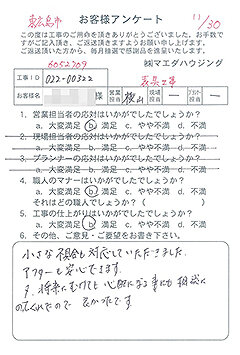 東広島市 お客様アンケート 11/30
この度は工事のご用命を頂きありがとうございました。お手数で
すがご記入頂き、ご返送頂きますようお願い申し上げます。
ご返送頂いた方から、毎月抽選で感謝品を進呈いたします。
6052709 ㈱マエダハウジング
工事ID 022-00322
お客様名 様 営業担当 現場担当 ー プランナー担当 ー
1. 営業担当者の応対はいかがでしたでしょうか?
a. 大変満足 b. 満足 c. やや不満 d. 不満
2. 現場担当者の応対はいかがでしたでしょうか?
a. 大変満足 b. 満足 c. やや不満 d. 不満
3. プランナーの応対はいかがでしたでしょうか?
a. 大変満足 b. 満足 c. やや不満 d. 不満
4. 職人のマナーはいかがでしたでしょうか?
a. 大変満足 b. 満足 c. やや不満 d. 不満
それはどの職人でしょうか? ( )
5. 工事の仕上がりはいかがでしたでしょうか?
a. 大変満足 b. 満足 c. やや不満 d. 不満
6. その他、ご意見・ご要望をお書き下さい。
小さな現合も対応していただきました。
アフターも安心できます。
又、将来にむけても心配になる事にも相談に
のってくれたので 良かったです